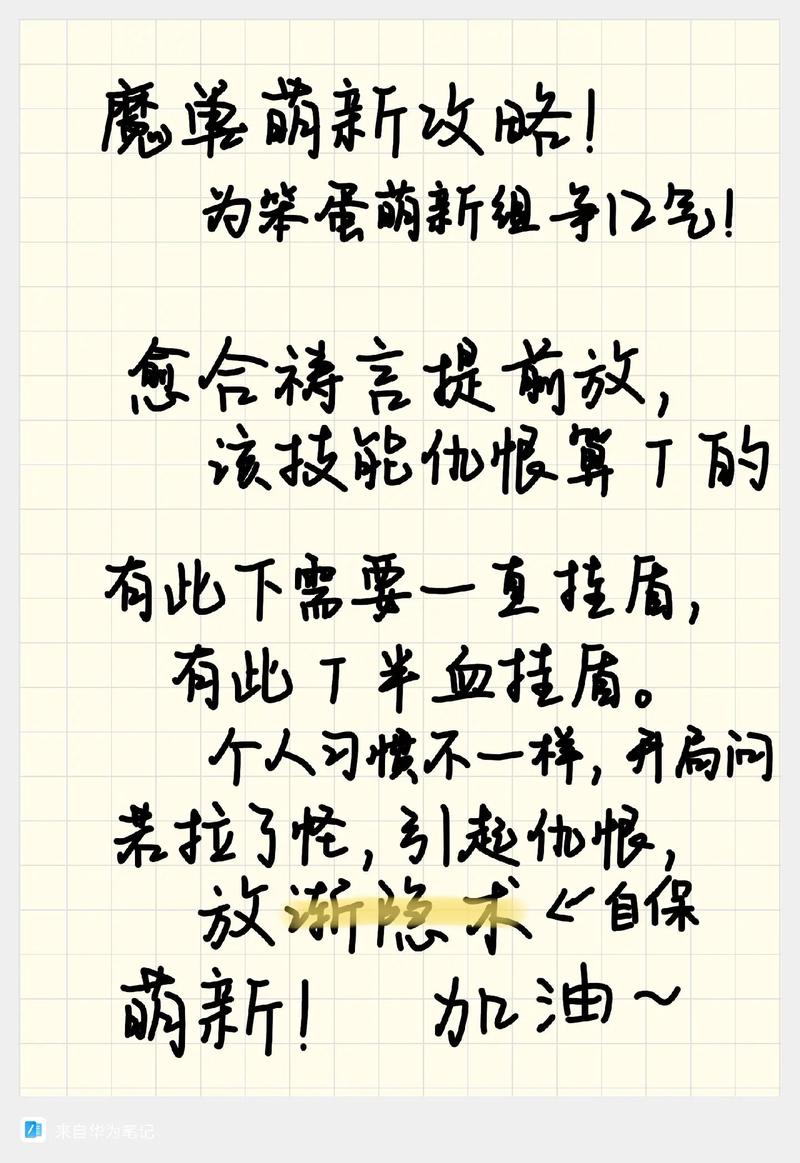 魔兽萌新攻略!
为笨蛋萌新组争口气!
愈合祷言提前放,
该技能仇恨算T的
有此下需要一直挂盾,
有此T半血挂盾。
个人习惯不一样,开局问
若拉了怪,引起仇恨,
放渐隐术←自保
萌新! 加油~
来自华为笔记